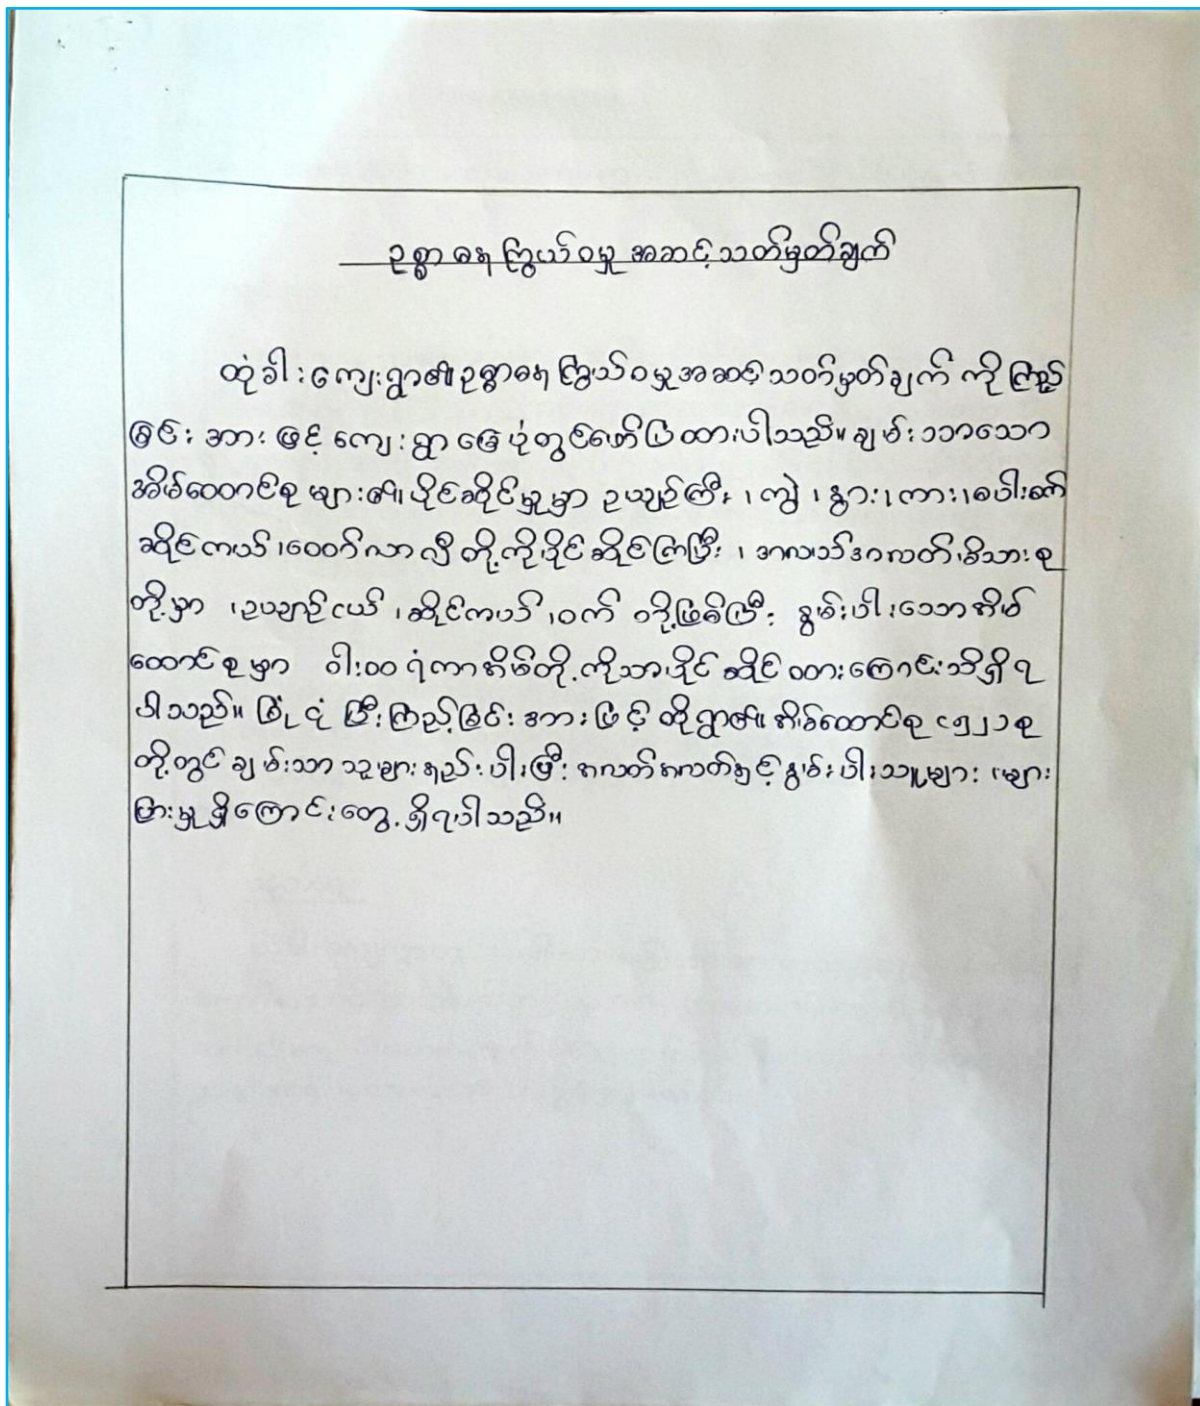 ဥစ္စာဓနကြွယ်ဝမှု အဆင့်သတ်မှတ်ချက်
ထုံခါးကျေးရွာ၏ ဥစ္စာဓနကြွယ်ဝမှုအဆင့်သတ်မှတ်ချက် ကို ကြည့်
ခြင်း အားဖြင့် ကျေးရွာမြေပုံတွင်ဖော်ပြထားပါသည်။ ချမ်းသာသော
အိမ်ထောင်စုများ၏ ပိုင်ဆိုင်မှုမှာ ဥယျဉ်ကြီး ၊ကျွဲ ၊နွား၊ကား၊စပါးစက်
ဆိုင်ကယ် ၊ထော်လာလှီ တို့ကိုပိုင်ဆိုင်ကြပြီး ၊ အလယ်အလတ်မိသားစု
တို့မှာ ၊ဥယျာဉ်ငယ် ၊ဆိုင်ကယ် ၊ဝက် တို့ဖြစ်ပြီး နွမ်းပါးသောအိမ်
ထောင်စုမှာ ဝါးထရံကာအိမ်တို့ကိုသာပိုင်ဆိုင်ထားကြောင်းသိရှိရ
ပါသည်။ ခြုံငုံပြီးကြည့်ခြင်းအားဖြင့် ထိုရွာ၏ အိမ်ထောင်စု
တို့တွင် ချမ်းသာသူများနည်းပါးပြီး အလတ်အလတ်နှင့် နွမ်းပါးသူများ များ
ပြားမှုရှိကြောင်းတွေ့ရှိရပါသည်။